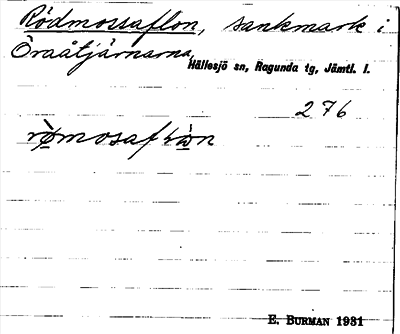 Rödmossaflon, sankmark i
Öraåtjärnarna,
Hällesjö sn, Ragunda tg, Jämtl. l.
276
E. BURMAN 1931